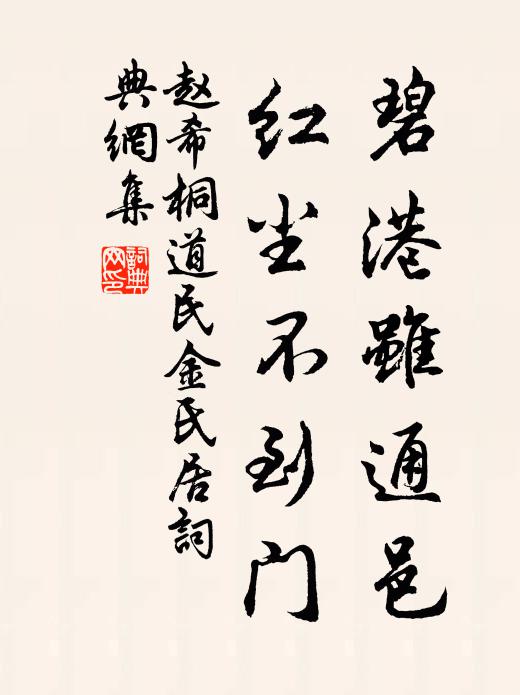 碧港雖通邑
红尘不到门
赵希桐道民金氏居詞
典網集
詞典网印